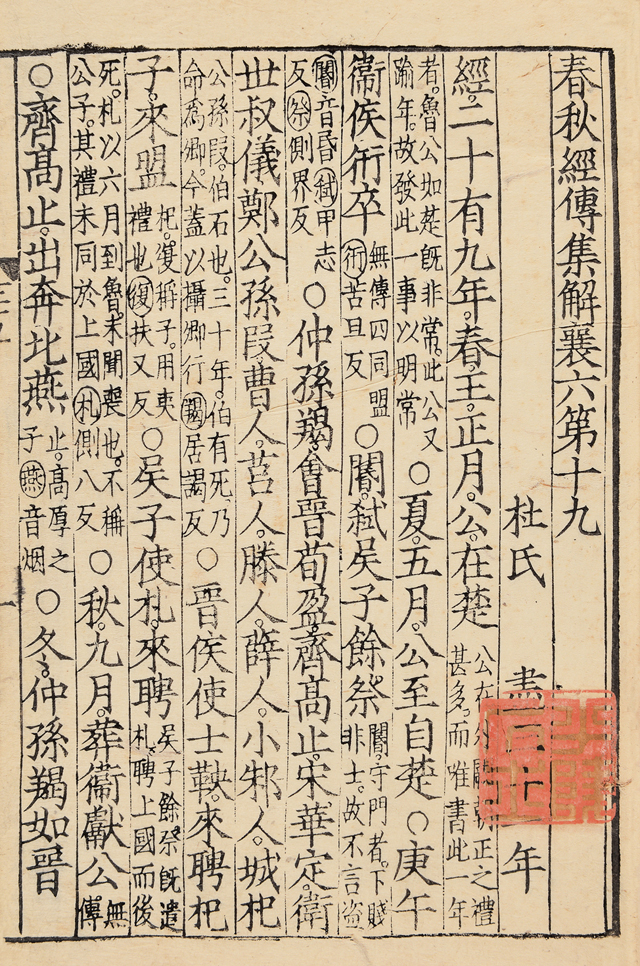 春秋經傳集解襄六第十九
杜氏 盡三十年
經。二十有九年。春。王。正月。公。在楚 公在外闕朝正之禮甚多。而唯書此一年
者。魯公如楚旣非常。此公又踰年。故發此一事以明常 ○夏。五月。公至自楚 ○庚午
衞侯衎卒 無傳四同盟衎苦旦反 ○閽。弑吳子餘祭 閽。守門者。下賤非士。故不言盜
閽音昏弑申志反祭側界反 ○仲孫羯會晉荀盈。齊高止。宋華定。衛
世叔儀鄭公孫段曹人。莒人。滕人。薛人。小邾人。城杞
公孫段。伯石也。三十年。伯有死乃命爲卿。今蓋以攝卿行羯居謁反 ○晉侯使士鞅。來聘杞
子。來盟 杞。復稱子。用夷禮也復扶又反 ○吳子使札。來聘 吳子餘祭旣遣札。聘上國而後
死。札以六月到魯。未聞喪也。不稱公子。其禮未同於上國札側八反 ○秋。九月。葬衞獻公 無傳
○齊高止。出奔北燕 止。高厚之子燕音烟 ○冬。仲孫羯如晉